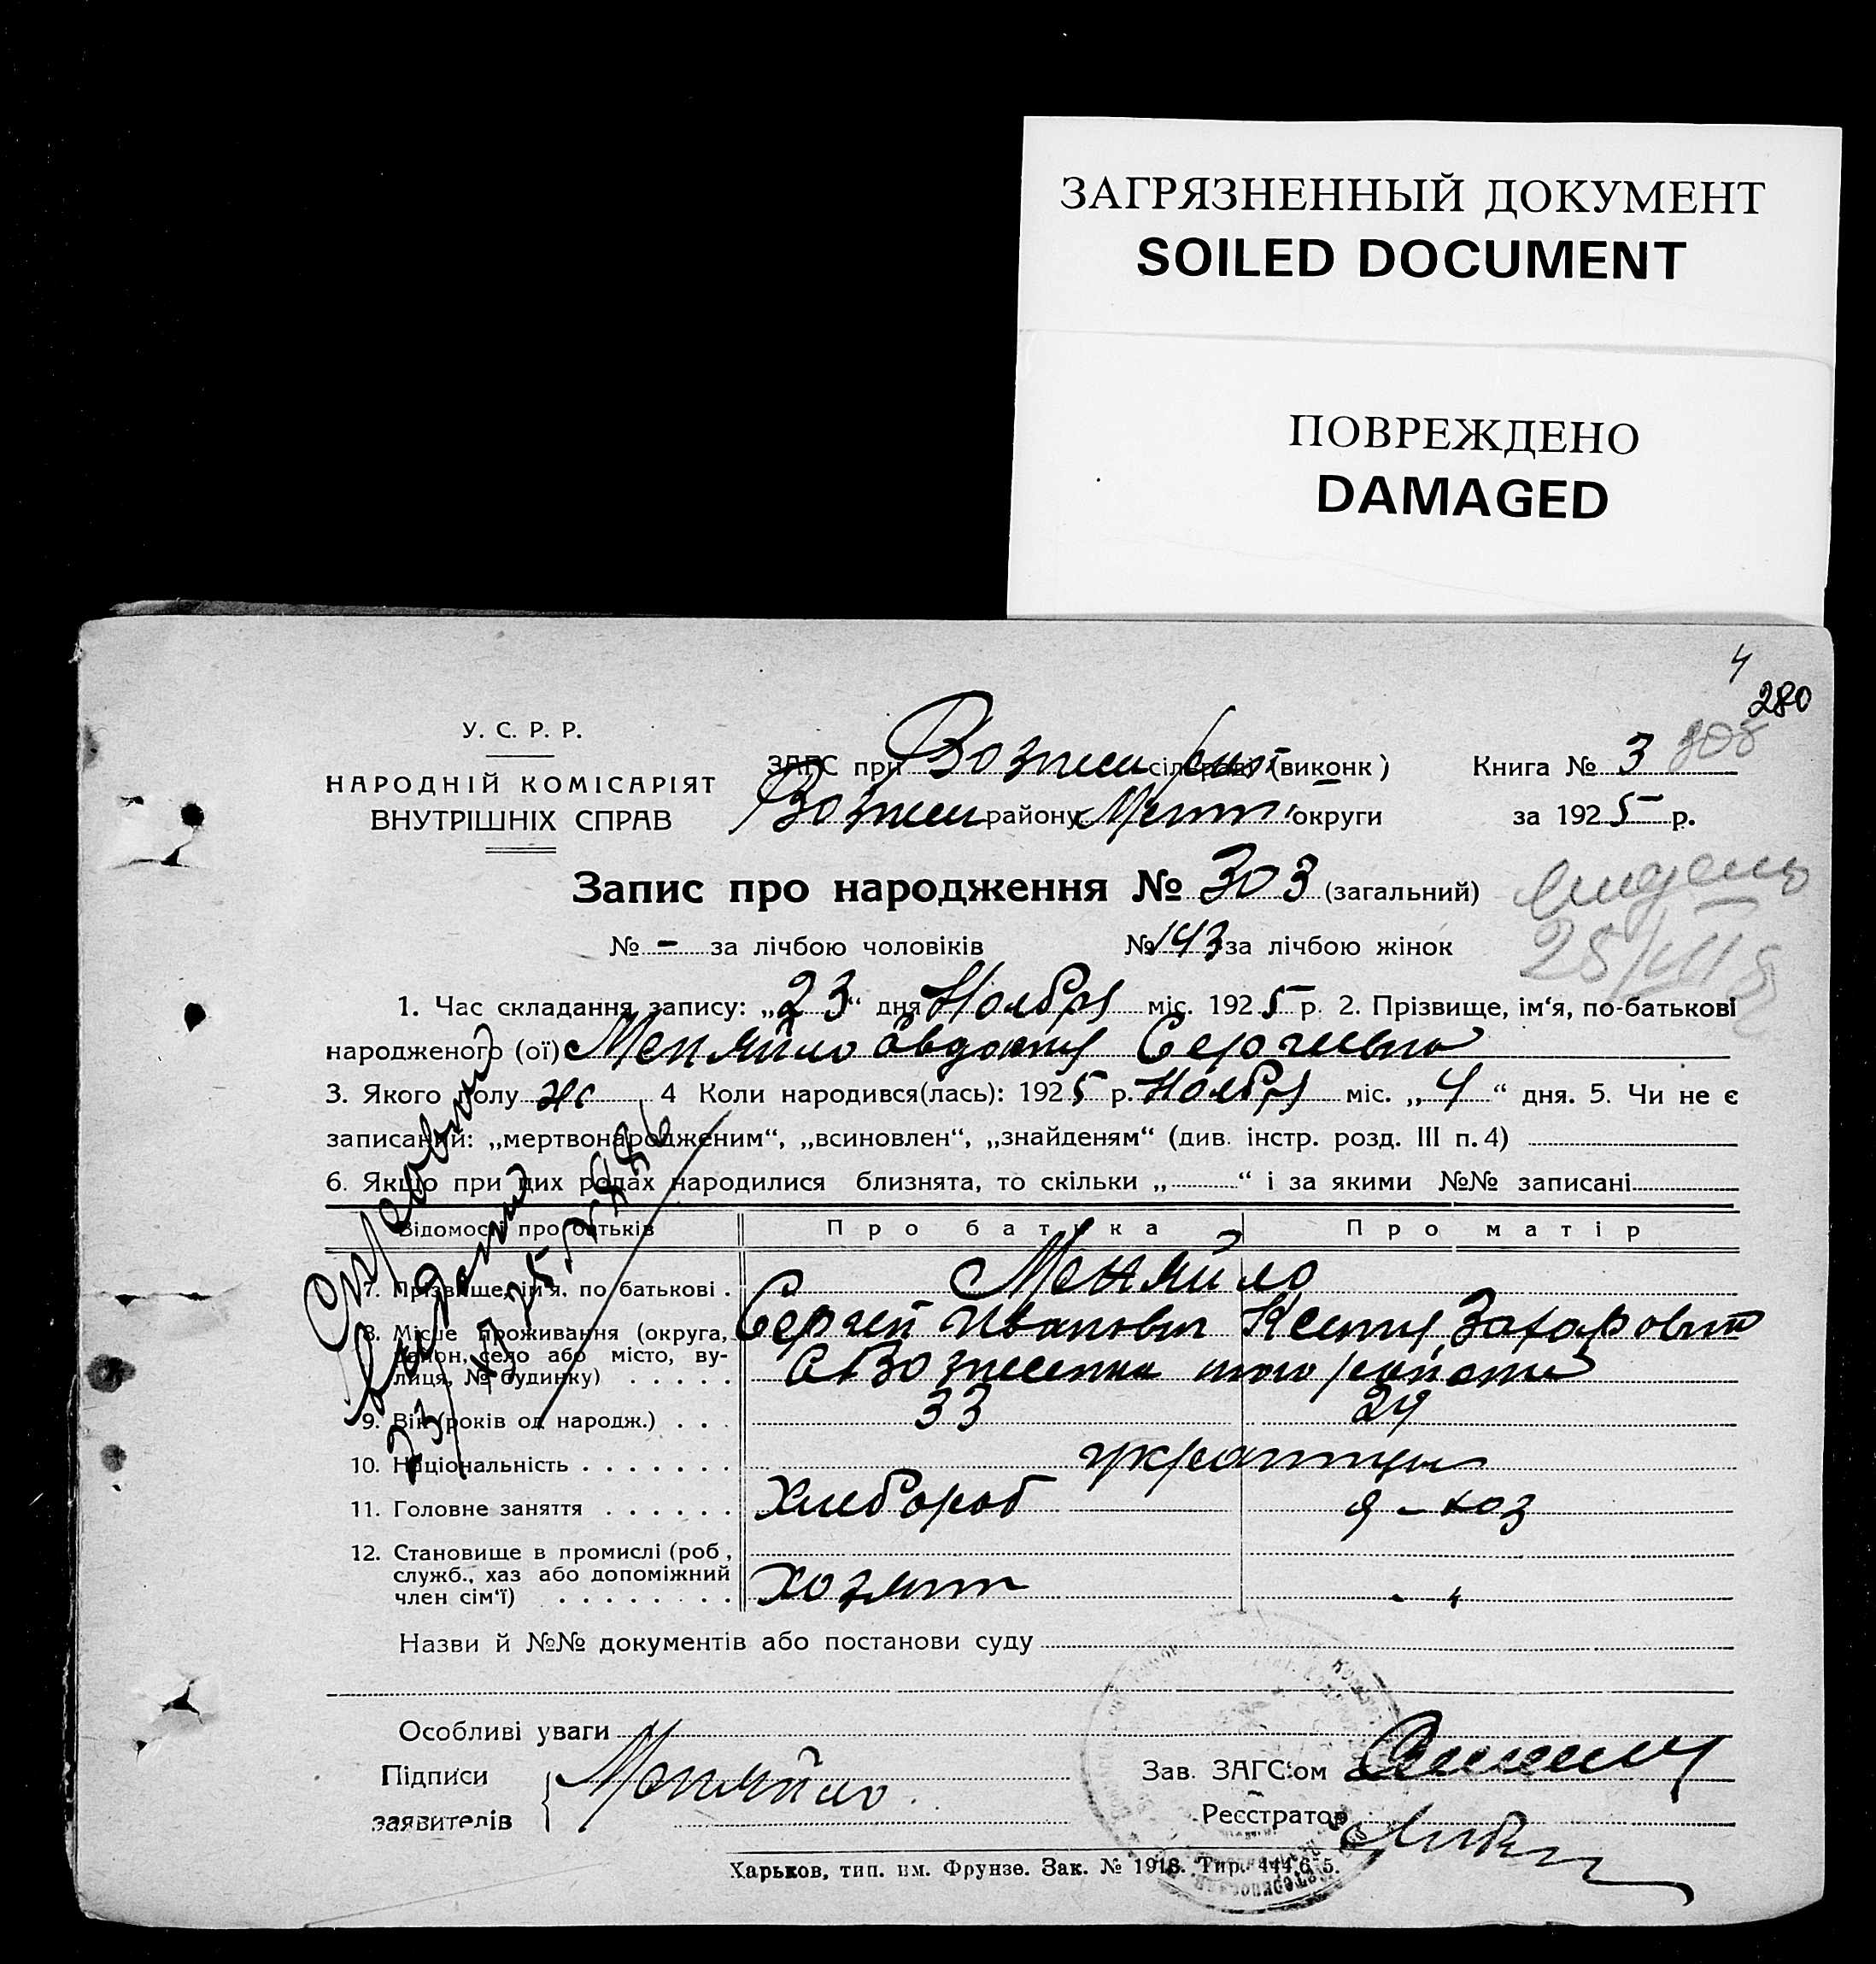 ЗАГРЯЗНЕННЫЙ ДОКУМЕНТ
SOILED DOCUMENT
ПОВРЕЖДЕНО
DAMAGED
4
280
308
У. С. Р. Р.
НАРОДНІЙ КОМІСАРІЯТ
ВНУТРІШНІХ СПРАВ
ЗАГС при Вознесен сільраді (виконк)
Вознесен району Меліт округи
Книга № 3
за 1925 р.
Запис про народження № 303 (загальний)
№ - за лічбою чоловіків № 143 за лічбою жінок
1. Час складання запису: „23“ дня Ноября міс. 1925 р. 2. Прізвище, ім‘я, по-батькові
народженого (ої) Меняйло Овдокия Сергиевна
3. Якого полу ж 4 Коли народився(лась): 1925 р. Ноября міс. „4“ дня. 5. Чи не є
записаний: „мертвонародженим“, „всиновлен“, „знайденям“ (див. інстр. розд. III п. 4)
6. Якщо при цих родах народилися близнята, то скільки „ “ і за якими №№ записані
Відомості про батьків Про батька Про матір
7. Прізвище, ім‘я, по батькові . Меняйло
Сергей Иванович Ксения Захаровна
8. Місце проживання (округа, район, село або місто, вулиця, № будинку) . . . . . С Вознесенка того района
9. Вік (років од народж.) . . . 33 29
10. Національність . . . . . . . украинцы
11. Головне заняття . . . . . . Хлебороб д-хоз
12. Становище в промислі (роб,
служб., хаз або допоміжний
член сім‘ї) . . . . . . . . Хозяин - "
Назви й №№ документів або постанови суду
Особливі уваги
Підписи
заявителів
Меняйло
Зав. ЗАГС‘ом
Реєстратор
Харьков, тип. им. Фрунзе. Зак. № 1918.